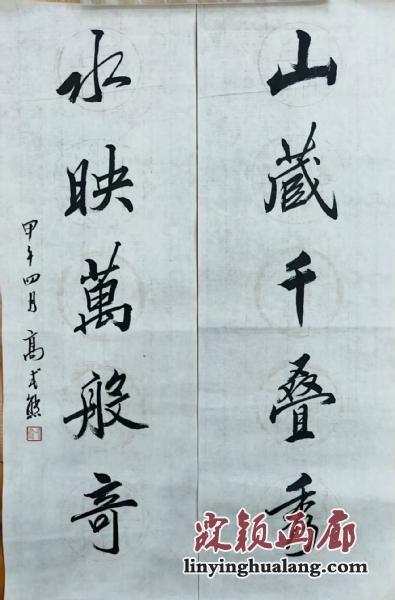 山藏千叠秀
水映萬般奇
甲午四月 高式熊
霖颖画廊
linyinghualang.com